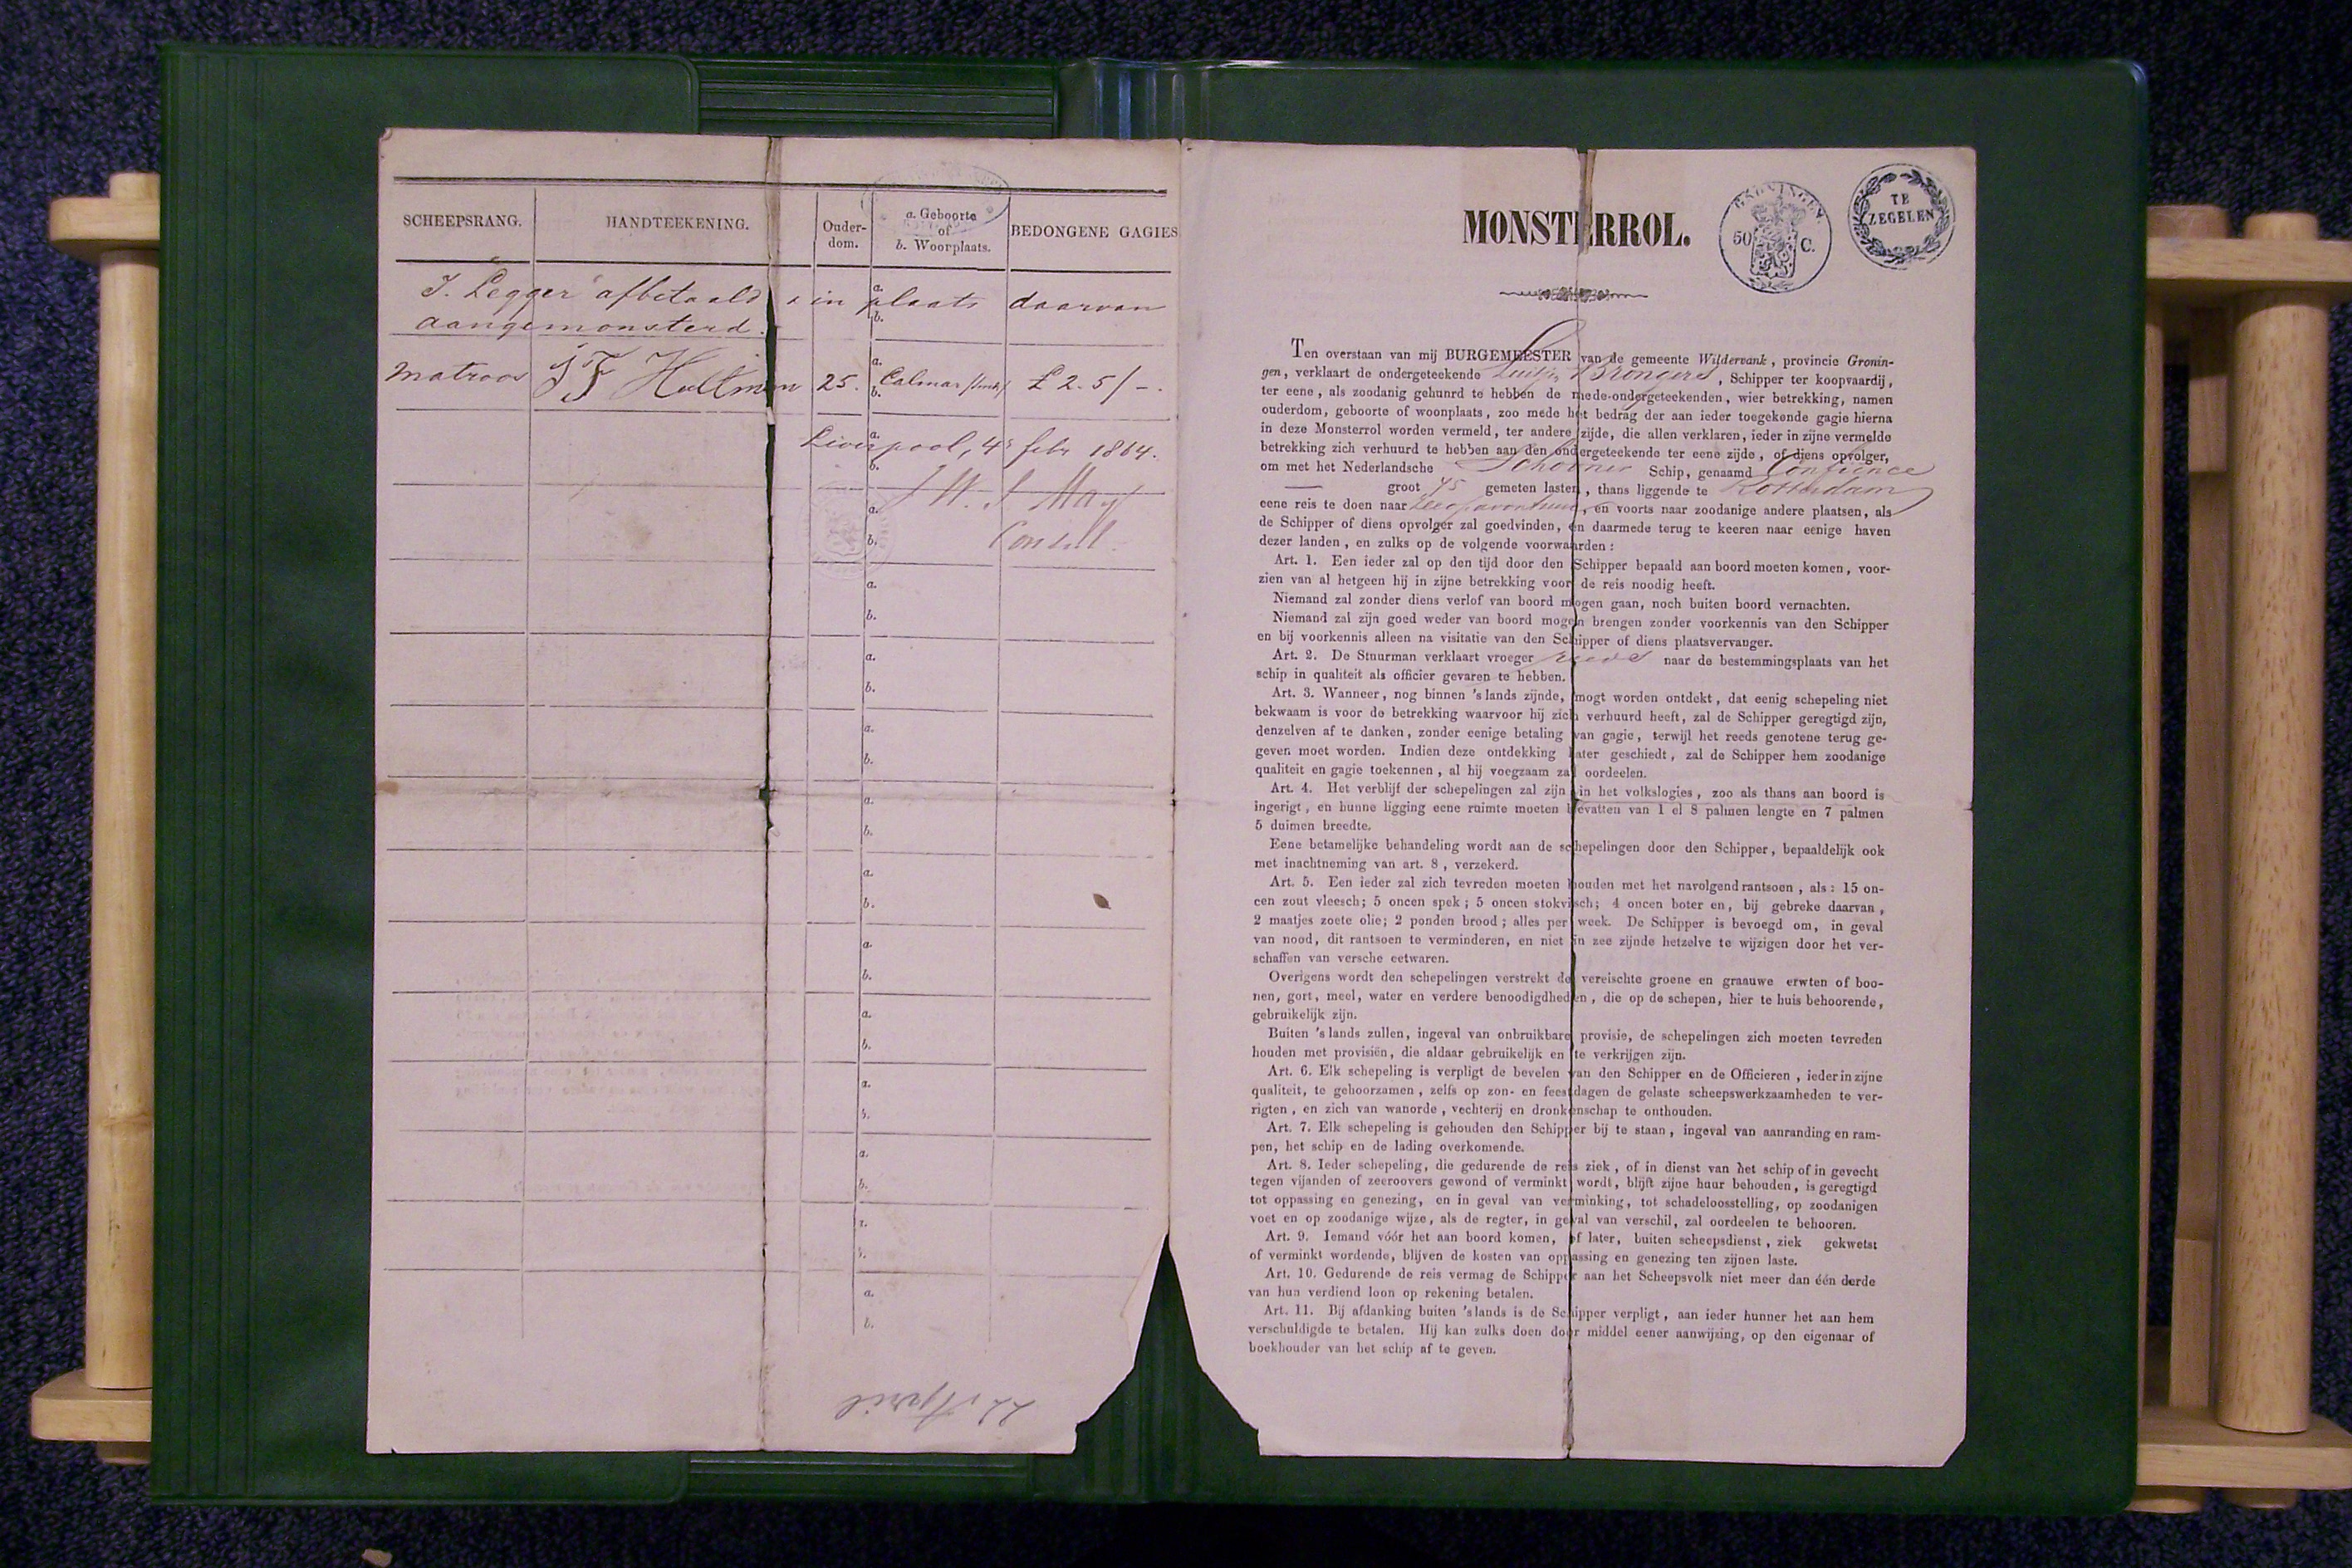 SCHEEPSRANG.
HANDTEEKENING.
Ouder-
dom.
a. Geboorte
of
b. Woorplaats.
BEDONGENE GAGIES
J. Legger afbetaald & in plaats daarvan
aangemonsterd.
Matroos J F Hallman 25. Calmar £ 2. 5/-.
Liverpool, 4 febr 1864.
May
Consul.
22 April
MONSTERROL.
GRONINGEN.
50 C.
TE
ZEGELEN
Ten overstaan van mij BURGEMEESTER van de gemeente Wildervank, provincie Gronin-
gen, verklaart de ondergeteekende Luitje Brongers, Schipper ter koopvaardij,
ter eene, als zoodanig gehuurd te hebben de mede-ondergeteekenden, wier betrekking, namen
ouderdom, geboorte of woonplaats, zoo mede het bedrag der aan ieder toegekende gagie hierna
in deze Monsterrol worden vermeld, ter andere zijde, die allen verklaren, ieder in zijne vermelde
betrekking zich verhuurd te hebben aan den ondergeteekende ter eene zijde, of diens opvolger,
om met het Nederlandsche Schooner Schip, genaamd Confience
groot 45 gemeten lasten, thans liggende te Rotterdam
eene reis te doen naar , en voorts naar zoodanige andere plaatsen, als
de Schipper of diens opvolger zal goedvinden, en daarmede terug te keeren naar eenige haven
dezer landen, en zulks op de volgende voorwaarden:
Art. 1. Een ieder zal op den tijd door den Schipper bepaald aan boord moeten komen, voor-
zien van al hetgeen hij in zijne betrekking voor de reis noodig heeft.
Niemand zal zonder diens verlof van boord mogen gaan, noch buiten boord vernachten.
Niemand zal zijn goed weder van boord mogen brengen zonder voorkennis van den Schipper
en bij voorkennis alleen na visitatie van den Schipper of diens plaatsvervanger.
Art. 2. De Stuurman verklaart vroeger reeds naar de bestemmingsplaats van het
schip in qualiteit als officier gevaren te hebben.
Art. 3. Wanneer, nog binnen 's lands zijnde, mogt worden ontdekt, dat eenig schepeling niet
bekwaam is voor de betrekking waarvoor hij zich verhuurd heeft, zal de Schipper geregtigd zijn,
denzelven af te danken, zonder eenige betaling van gagie, terwijl het reeds genotene terug ge-
geven moet worden. Indien deze ontdekking later geschiedt, zal de Schipper hem zoodanige
qualiteit en gagie toekennen, al hij voegzaam zal oordeelen.
Art. 4. Het verblijf der schepelingen zal zijn in het volkslogies, zoo als thans aan boord is
ingerigt, en hunne ligging eene ruimte moeten bevatten van 1 el 8 palmen lengte en 7 palmen
5 duimen breedte.
Eene betamelijke behandeling wordt aan de schepelingen door den Schipper, bepaaldelijk ook
met inachtneming van art. 8, verzekerd.
Art. 5. Een ieder zal zich tevreden moeten houden met het navolgend rantsoen, als: 15 on-
cen zout vleesch; 5 oncen spek; 5 oncen stokvisch; 4 oncen boter en, bij gebreke daarvan,
2 maatjes zoete olie; 2 ponden brood; alles per week. De Schipper is bevoegd om, in geval
van nood, dit rantsoen te verminderen, en niet in zee zijnde hetzelve te wijzigen door het ver-
schaffen van versche eetwaren.
Overigens wordt den schepelingen verstrekt de vereischte groene en graauwe erwten of boo-
nen, gort, meel, water en verdere benoodigdheden, die op de schepen, hier te huis behoorende,
gebruikelijk zijn.
Buiten 's lands zullen, ingeval van onbruikbare provisie, de schepelingen zich moeten tevreden
houden met provisiën, die aldaar gebruikelijk en te verkrijgen zijn.
Art. 6. Elk schepeling is verpligt de bevelen van den Schipper en de Officieren, ieder in zijne
qualiteit, te gehoorzamen, zelfs op zon- en feestdagen de gelaste scheepswerkzaamheden te ver-
rigten, en zich van wanorde, vechterij en dronkenschap te onthouden.
Art. 7. Elk schepeling is gehouden den Schipper bij te staan, ingeval van aanranding en ram-
pen, het schip en de lading overkomende.
Art. 8. Ieder schepeling, die gedurende de reis ziek, of in dienst van het schip of in gevecht
tegen vijanden of zeeroovers gewond of verminkt wordt, blijft zijne huur behouden, is geregtigd
tot oppassing en genezing, en in geval van verminking, tot schadeloosstelling, op zoodanigen
voet en op zoodanige wijze, als de regter, in geval van verschil, zal oordeelen te behooren.
Art. 9. Iemand vóór het aan boord komen, of later, buiten scheepsdienst, ziek gekwetst
of verminkt wordende, blijven de kosten van oppassing en genezing ten zijnen laste.
Art. 10. Gedurende de reis vermag de Schipper aan het Scheepsvolk niet meer dan één derde
van hun verdiend loon op rekening betalen.
Art. 11. Bij afdanking buiten 's lands is de Schipper verpligt, aan ieder hunner het aan hem
verschuldigde te betalen. Hij kan zulks doen door middel eener aanwijzing, op den eigenaar of
boekhouder van het schip af te geven.